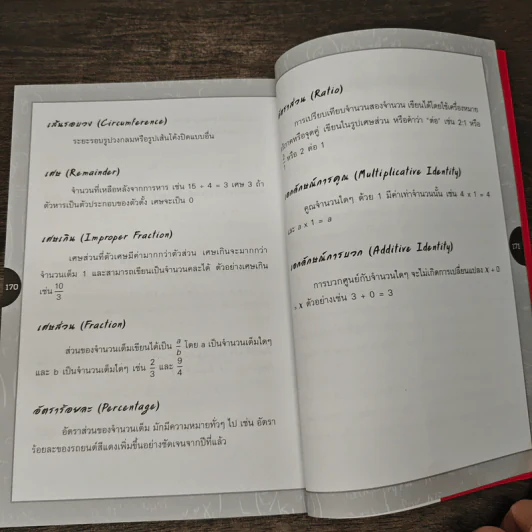 เส้นรอบวง (Circumference)
ระยะรอบรูปวงกลมหรือรูปเส้นโค้งปิดแบบอื่น
เศษ (Remainder)
จำนวนที่เหลือหลังจากการหาร เช่น 15 ÷ 4 = 3 เศษ 3 ถ้า
ตัวหารเป็นตัวประกอบของตัวตั้ง เศษจะเป็น 0
เศษเกิน (Improper Fraction)
เศษส่วนที่ตัวเศษมีค่ามากกว่าตัวส่วน เศษเกินจะมากกว่า
จำนวนเต็ม 1 และสามารถเขียนเป็นจำนวนคละได้ ตัวอย่างเศษเกิน
เช่น 10/3
170
เศษส่วน (Fraction)
ส่วนของจำนวนเต็มเขียนได้เป็น a/b โดย a เป็นจำนวนเต็มใดๆ
และ b เป็นจำนวนเต็มใดๆ เช่น 2/3 และ 9/4
อัตราร้อยละ (Percentage)
อัตราส่วนของจำนวนเต็ม มักมีความหมายทั่วๆ ไป เช่น อัตรา
ร้อยละของรถยนต์สีแดงเพิ่มขึ้นอย่างชัดเจนจากปีที่แล้ว
อัตราส่วน (Ratio)
การเปรียบเทียบจำนวนสองจำนวน เขียนได้โดยใช้เครื่องหมาย
หรือจุดคู่ เขียนในรูปเศษส่วน หรือคำว่า "ต่อ" เช่น 2:1 หรือ
หรือ 2 ต่อ 1
เอกลักษณ์การคูณ (Multiplicative Identity)
คูณจำนวนใดๆ ด้วย 1 มีค่าเท่าจำนวนนั้น เช่น 4 x 1 = 4
และ a x 1 = a
เอกลักษณ์การบวก (Additive Identity)
การบวกศูนย์กับจำนวนใดๆ จะไม่เกิดการเปลี่ยนแปลง x + 0
= x ตัวอย่างเช่น 3 + 0 = 3